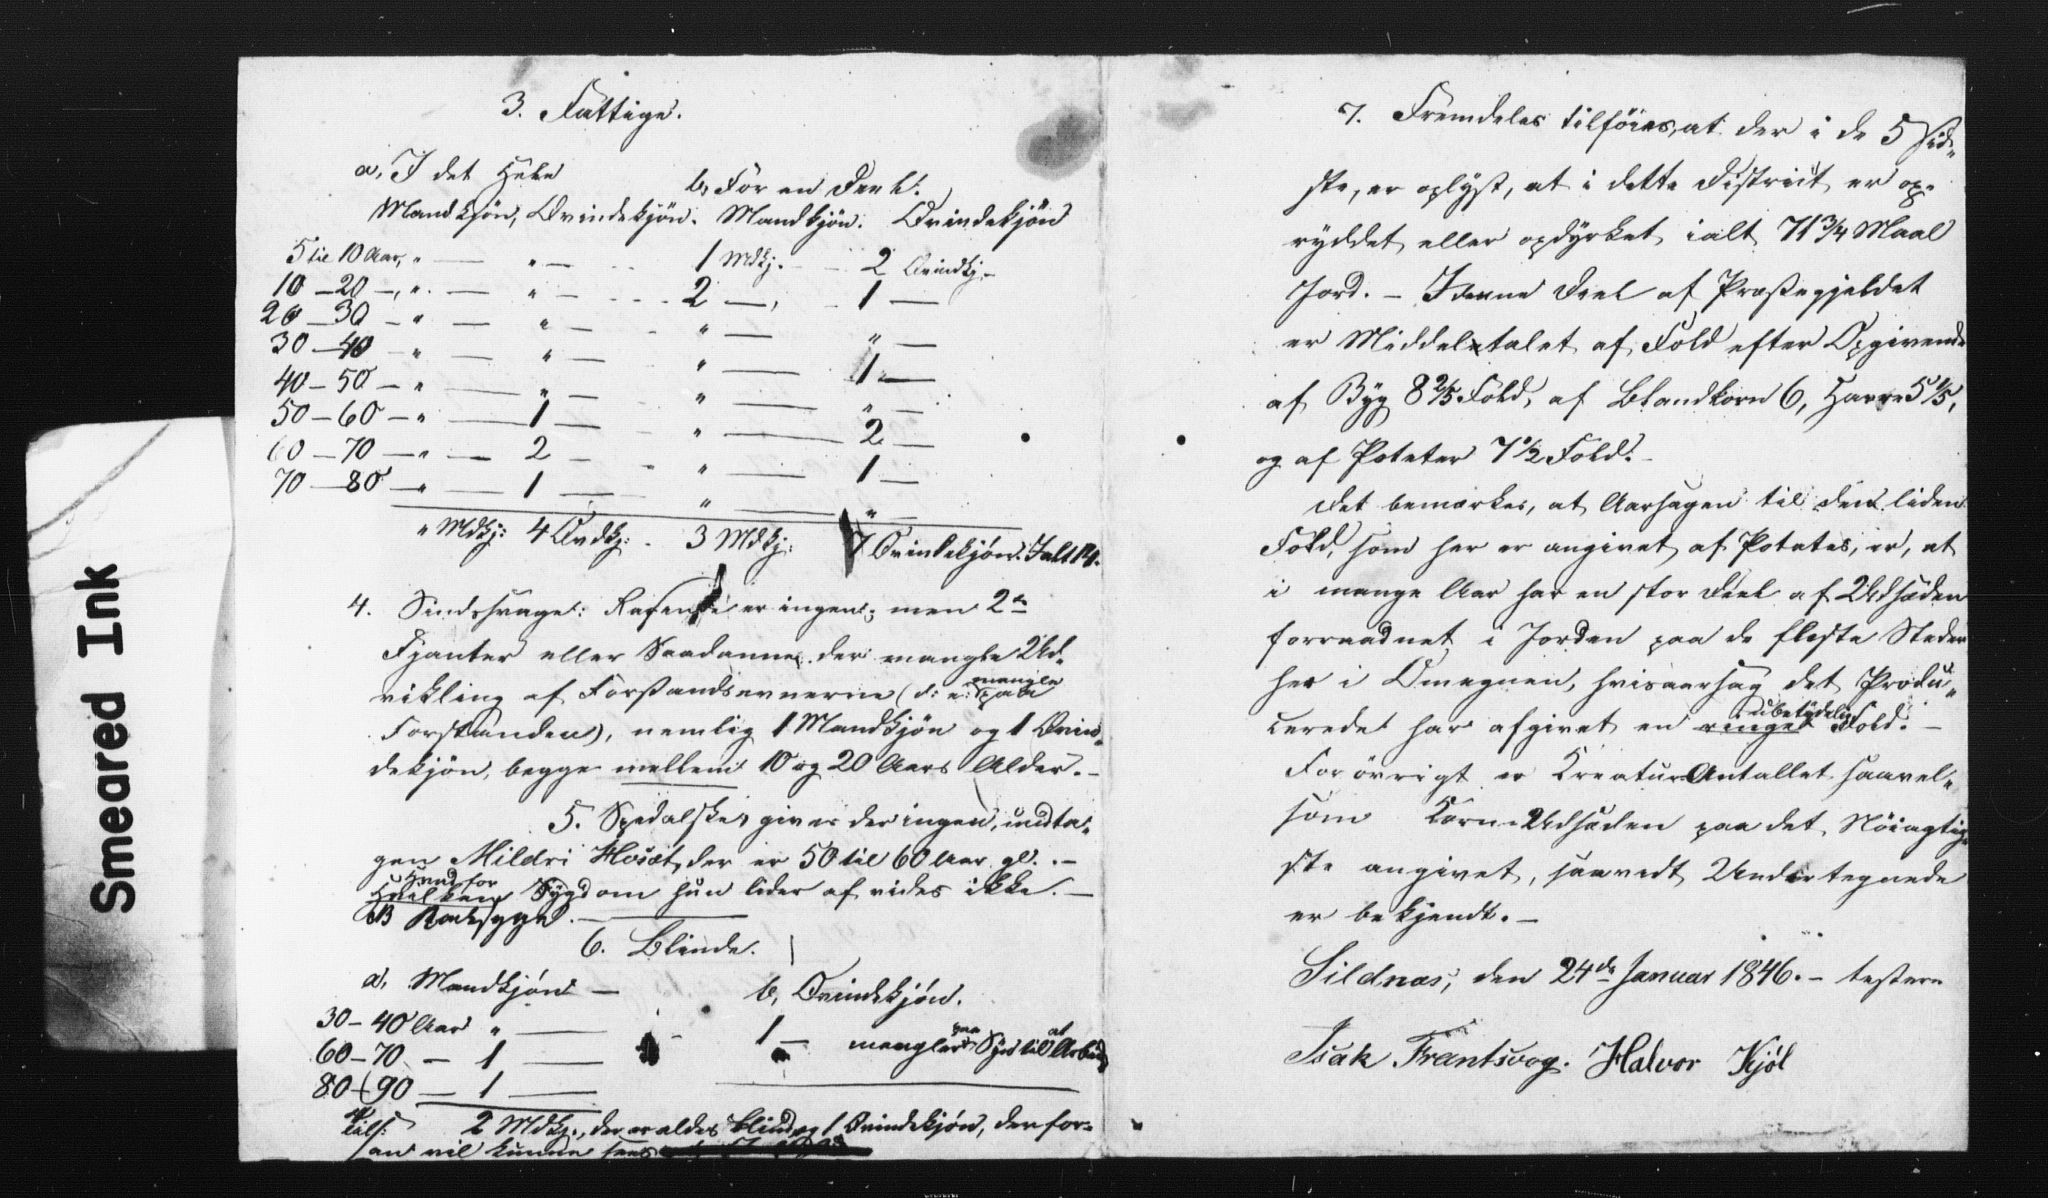 Smeared Ink
3. Fattige.
a, I det Hele
b, For en Deel:
Mandkjön, Qvindekjön. Mandkjön. Qvindekjön
5 til 10 Aar, " — " — 1 Mdkj. — 2 Qvindkj. —
10 — 20 —, " — " — 2 —, 1 —
20 — 30 — " — " — " — " —
30 — 40 — " — " — " — 1 —
40 — 50 — " — " — " — " —
50 — 60 — " — 1 — " — 2 —
60 — 70 — " — 2 — " — 1 —
70 — 80 — " — 1 — " — " —
" Mdkj: 4 Qvdkj: 3 Mdkj: 7 Qvindekjön. Ialt 14.
4. Sindssvage: Rasende er ingen; men 2de
Fjanter eller Saadanne der mangle Ud-
vikling af Forstandsevnerne (d: e: mangle paa
Forstanden), nemlig 1 Mandkjön og 1 Qvin-
dekjön, begge mellem 10 og 20 Aars Alder. —
5. Spedalske, gives der ingen, undta-
gen Mildri Hosæt, der er 50 til 60 Aar gl. —
Hvad for
Hvilken Sygdom hun lider af vides ikke. —
6. Blinde.
a, Mandkjön —
b, Qvindekjön.
30 — 40 Aar " — 1 — mangler paa Syn til at Arbeid
60 — 70 — 1 —
80 — 90 — 1 —
2 Mdkj., der er aldes blind og 1 Qvindekjön, der for-
san vil kunne sees
7. Fremdeles tilföies, at der i de 5 sid-
ste, er oplyst, at i dette District er op-
ryddet eller opdyrket ialt 71 3/4 Maal
Jord. — I denne Deel af Præstegjeldet
er Middeltalet af Fold efter Opgivende
af Byg 8 2/5 Fold, af Blandkorn 6, Havre 5 1/5,
og af Poteter 7 1/2 Fold. —
Det bemærkes, at Aarsagen til den liden
Fold, som her er angivet af Potetes, er, at
i mange Aar har en stor Deel af Udsæden
forraadnet i Jorden paa de fleste Steder
her i Omegnen, hvisaarsag det Produ-
cerede har afgivet en ringe ubetydelig Fold. —
For övrigt er Kreatur Antallet saavel-
som Korn-Udsæden paa det Nöiagtig-
ste angivet, saavidt Undertegnede
er bekjendt. —
Sildnæs, den 24de Januar 1846. — testere
Isak Frantsvog. Halvor Kjöl